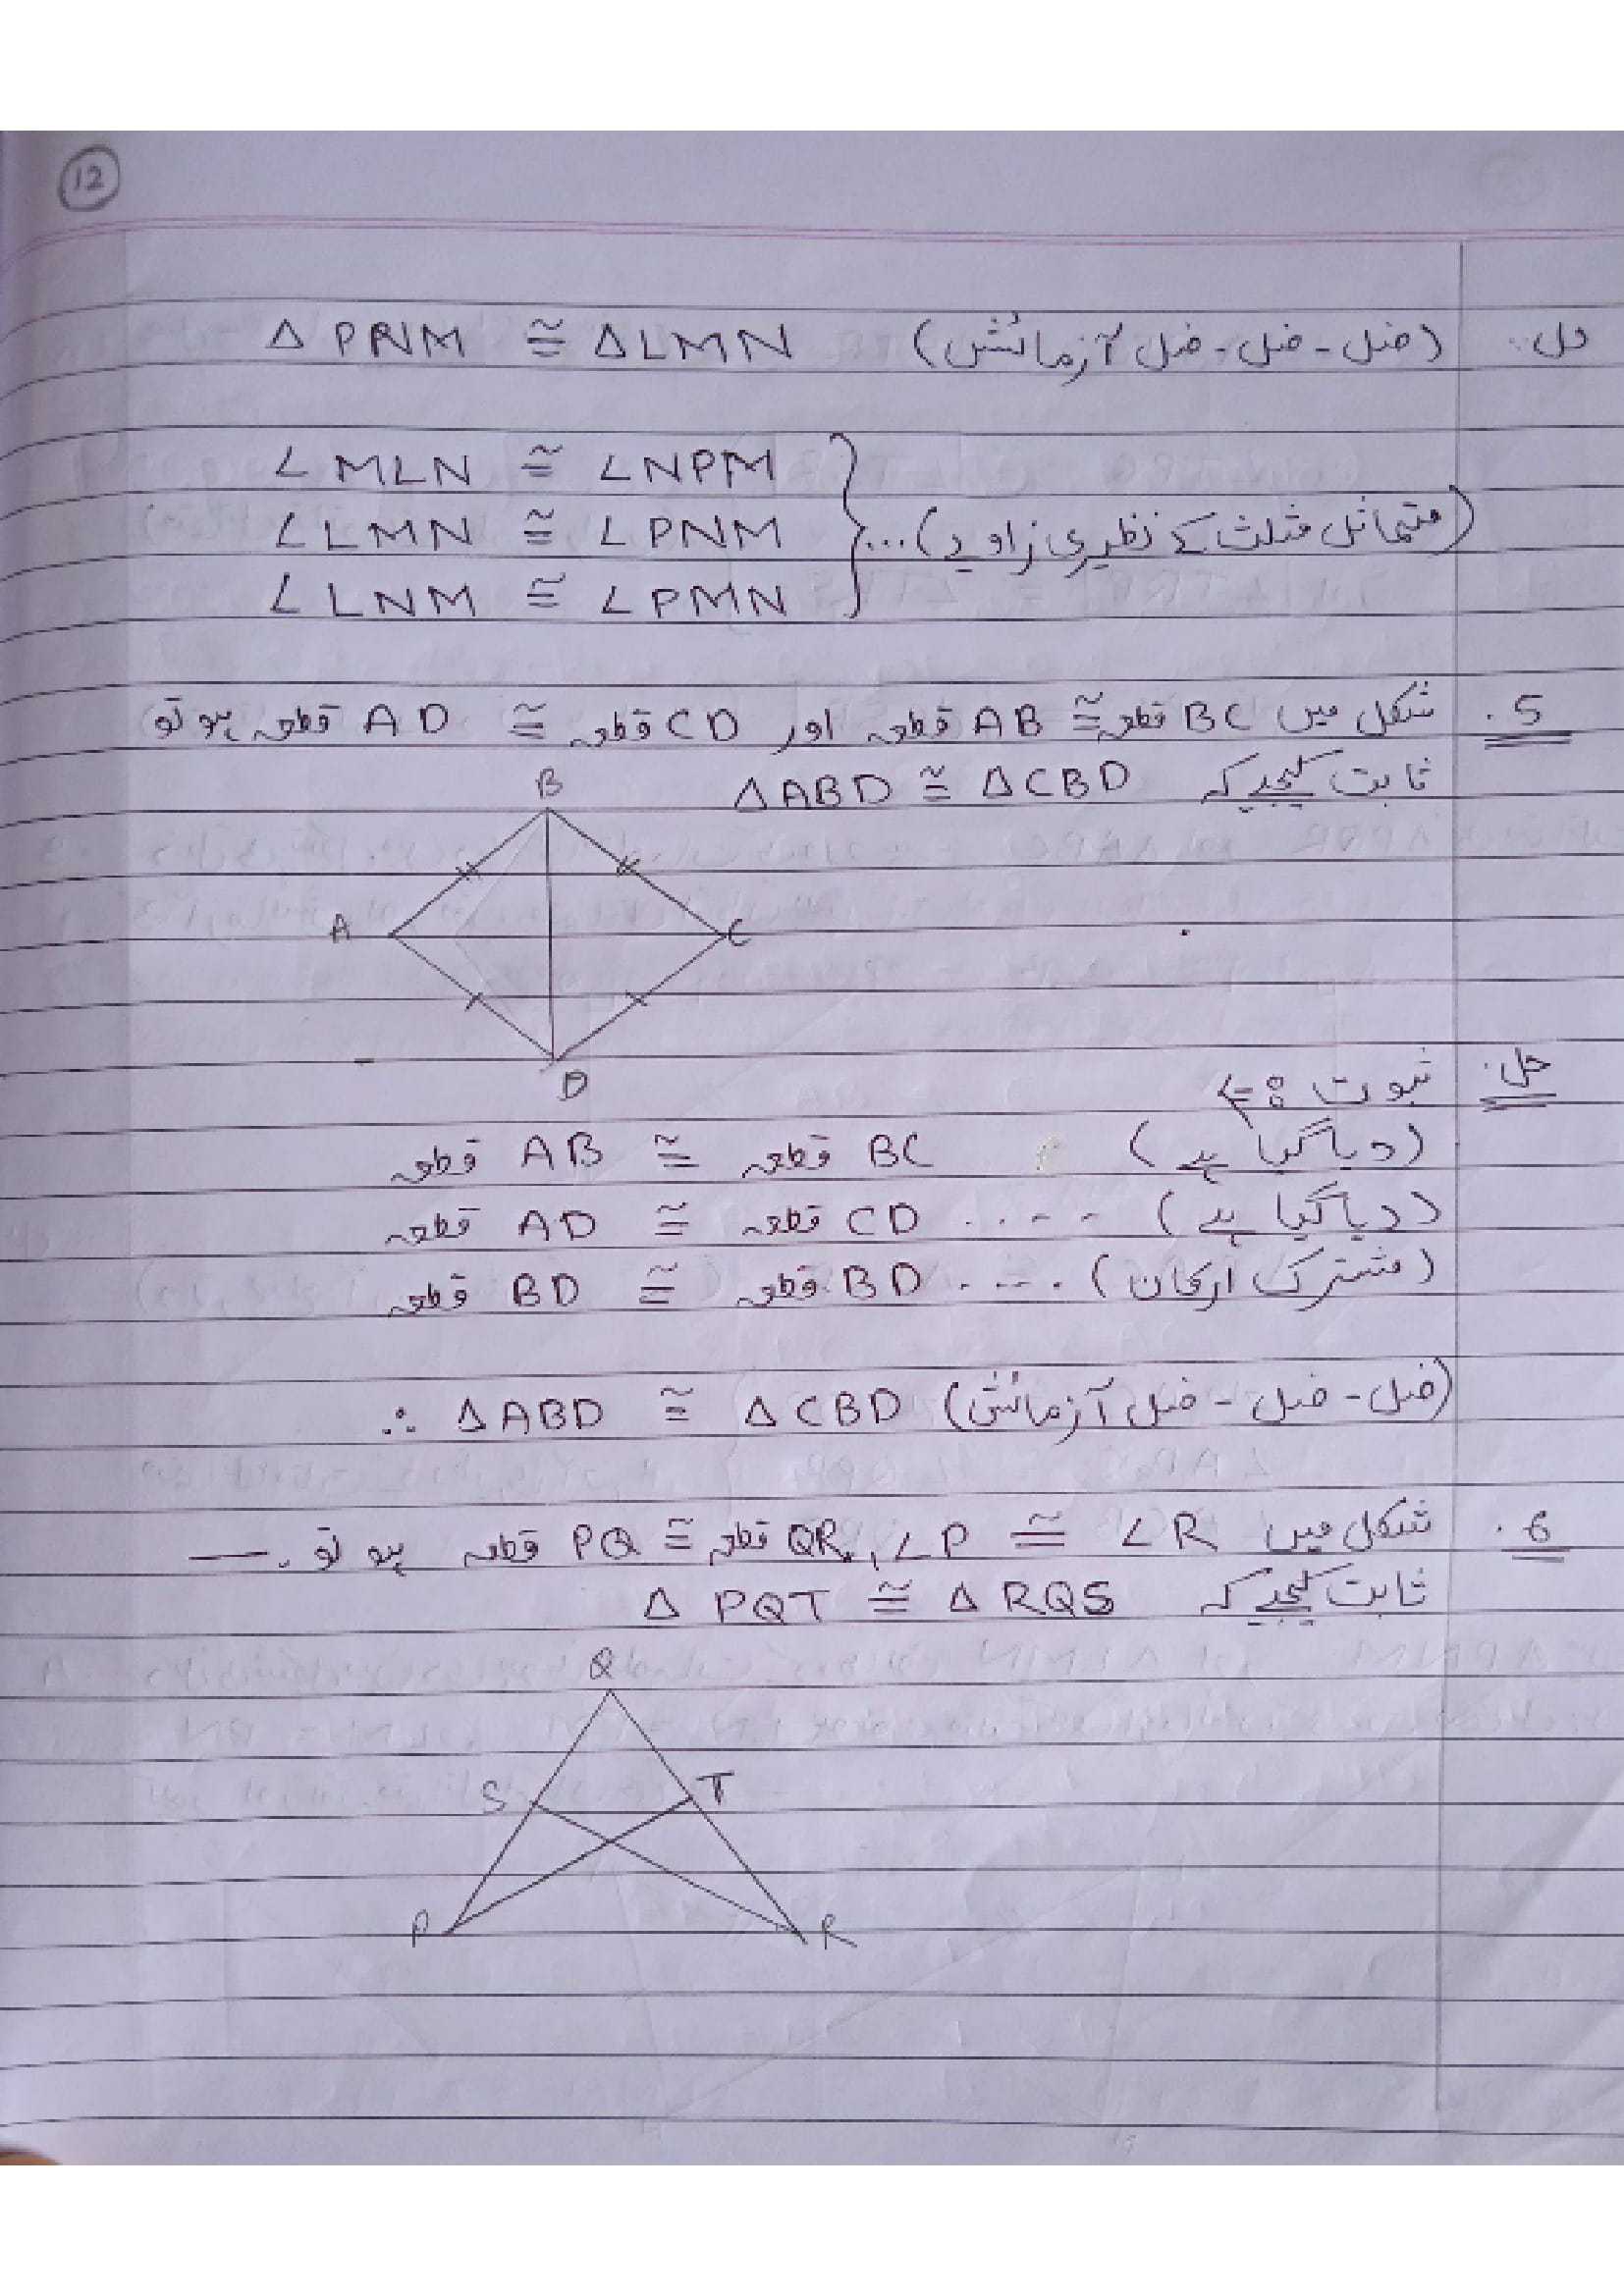 12
حل. (ضل - ضل - ضل آزمائش) Δ PNM ≅ Δ LMN
∠ MLN ≅ ∠ NPM
∠ LMN ≅ ∠ PNM } ...(متماثل مثلث کے نظیری زاویے)
∠ LNM ≅ ∠ PMN
5. شکل میں قطعہ BC ≅ قطعہ AB اور قطعہ CD ≅ قطعہ AD ہو تو
ثابت کیجیے کہ Δ ABD ≅ Δ CBD
B
A C
D
حل. ثبوت :⇐
قطعہ AB ≅ قطعہ BC (دیا گیا ہے)
قطعہ AD ≅ قطعہ CD .... (دیا گیا ہے)
قطعہ BD ≅ قطعہ BD .... (مشترک ارکان)
∴ Δ ABD ≅ Δ CBD (ضل - ضل - ضل آزمائش)
6. شکل میں ∠P ≅ ∠R ، قطعہ QR ≅ قطعہ PQ ہو تو . —
ثابت کیجیے کہ Δ PQT ≅ Δ RQS
Q
S T
P R